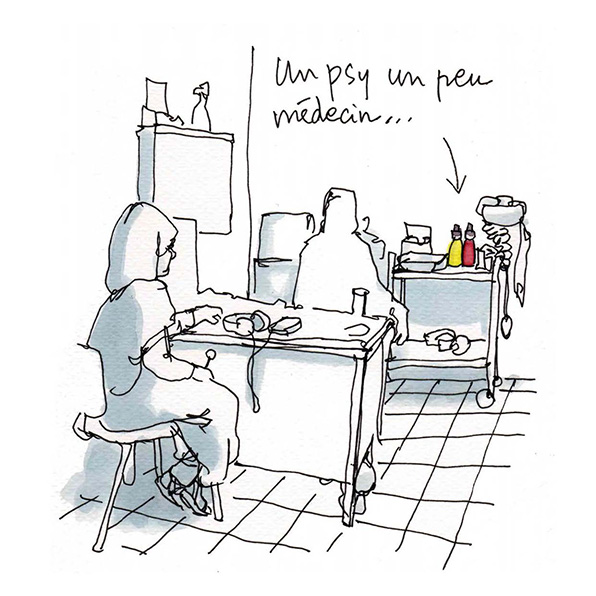 Un psy un peu
médecin...